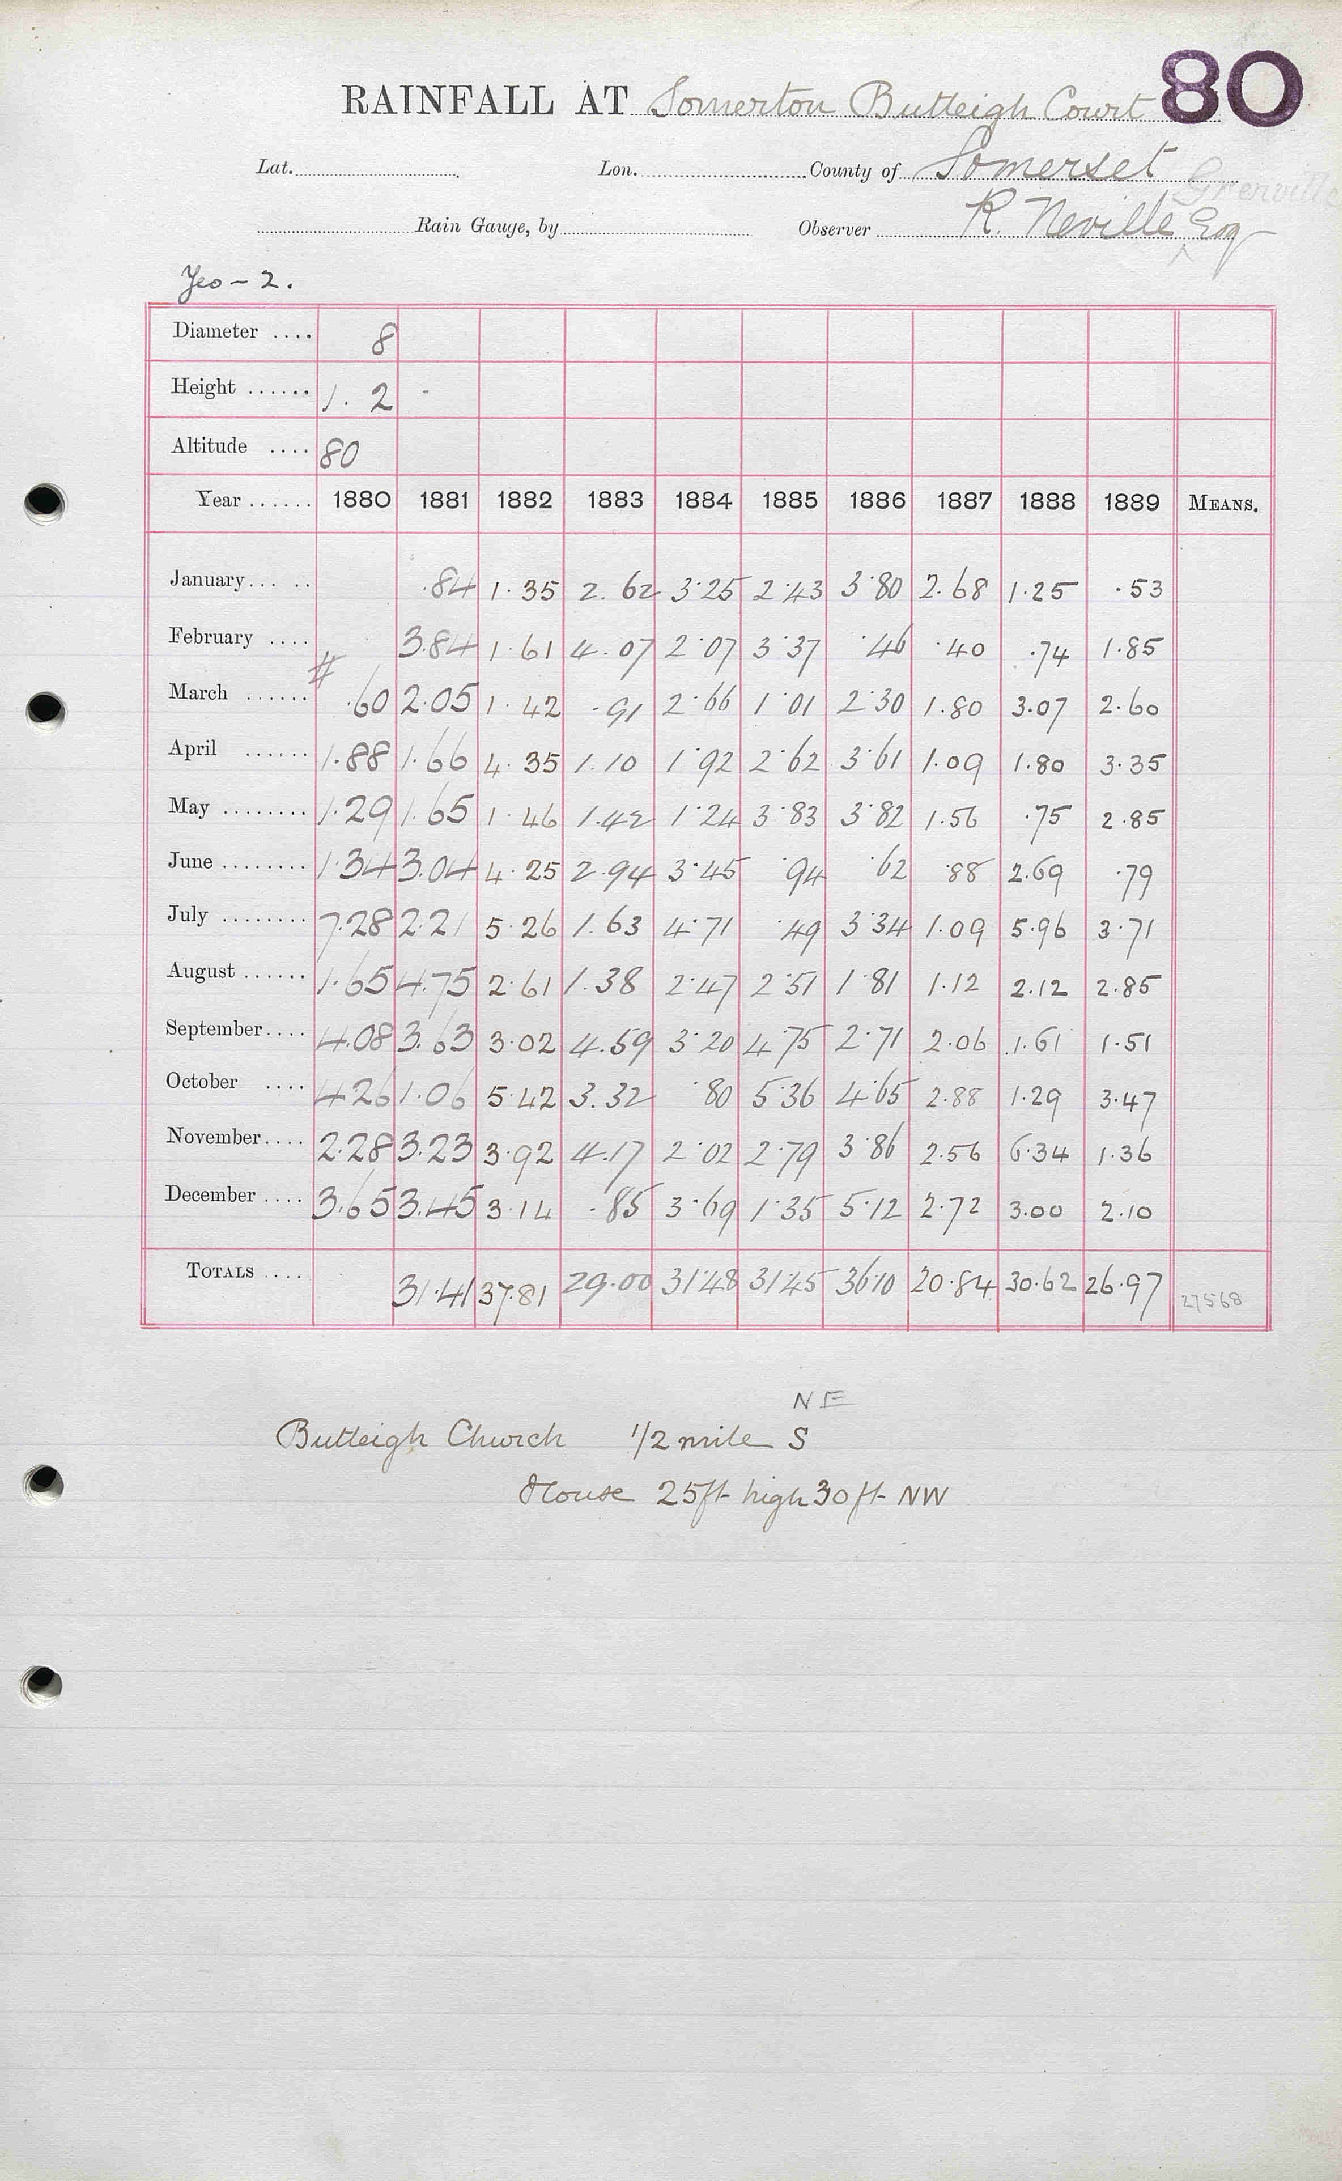 80
RAINFALL AT Somerton Butleigh Court
Lat. Lon. County of Somerset
Grenville
Rain Gauge, by Observer R. Neville ^ Esq
Yeo - 2.
Diameter .... 8
Height ...... 1. 2 -
Altitude .... 80
Year ...... 1880 1881 1882 1883 1884 1885 1886 1887 1888 1889 MEANS.
January... .. .84 1.35 2.62 3.25 2.43 3.80 2.68 1.25 .53
February .... 3.84 1.61 4.07 2.07 3.37 .46 .40 .74 1.85
March ...... # .60 2.05 1.42 .91 2.66 1.01 2.30 1.80 3.07 2.60
April ...... 1.88 1.66 4.35 1.10 1.92 2.62 3.61 1.09 1.80 3.35
May ........ 1.29 1.65 1.46 1.42 1.24 3.83 3.82 1.56 .75 2.85
June ........ 1.34 3.04 4.25 2.94 3.45 .94 .62 .88 2.69 .79
July ........ 7.28 2.21 5.26 1.63 4.71 .49 3.34 1.09 5.96 3.71
August ...... 1.65 4.75 2.61 1.38 2.47 2.51 1.81 1.12 2.12 2.85
September.... 4.08 3.63 3.02 4.59 3.20 4.75 2.71 2.06 1.61 1.51
October .... 4.26 1.06 5.42 3.32 .80 5.36 4.65 2.88 1.29 3.47
November.... 2.28 3.23 3.92 4.17 2.02 2.79 3.86 2.56 6.34 1.36
December .... 3.65 3.45 3.14 .85 3.69 1.35 5.12 2.72 3.00 2.10
TOTALS .... 31.41 37.81 29.00 31.48 31.45 36.10 20.84 30.62 26.97 27568
NE
Butleigh Church 1/2 mile S
House 25ft high 30ft NW